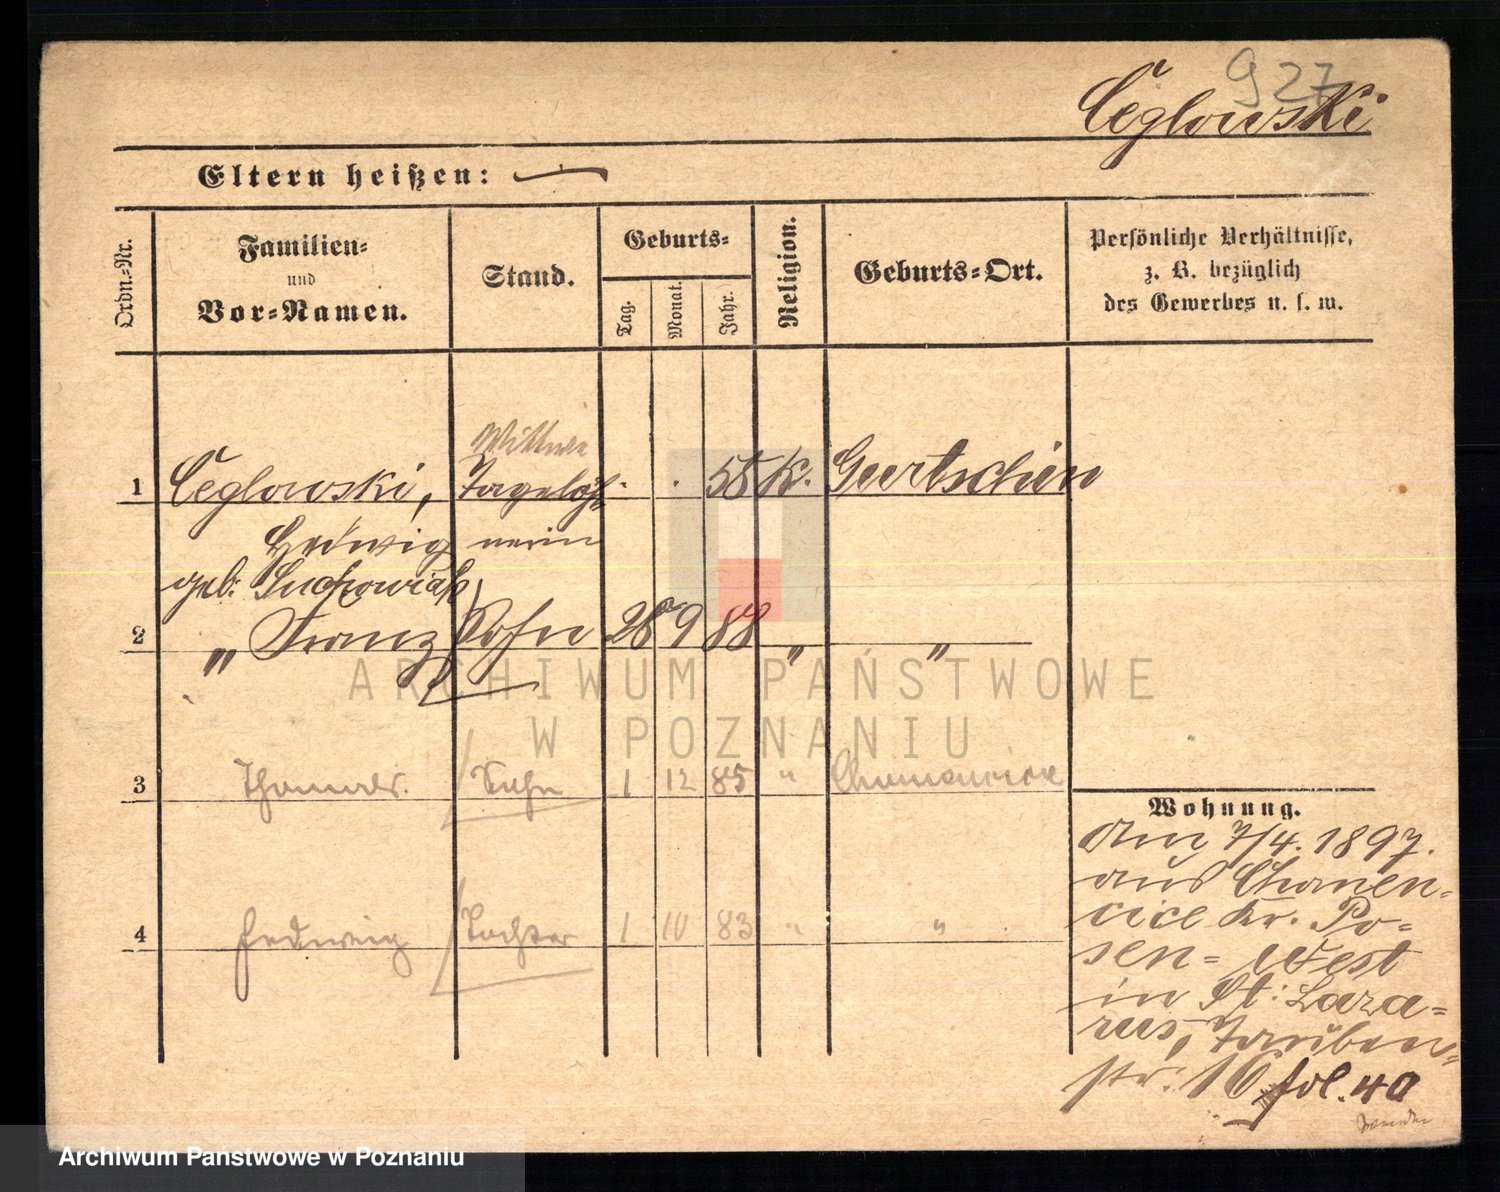 927
Ceglowski
Eltern heißen: —
Ordn.-Nr.
Familien-
und
Vor-Namen.
Stand.
Geburts-
Tag.
Monat.
Jahr.
Religion.
Geburts-Ort.
Persönliche Verhältnisse,
z. B. bezüglich
des Gewerbes u. s. w.
Wittwe
1 Ceglowski, Tagelöh- . . 55 K. Gurtschin
Hedwig nerin
geb: Suchowiak
2 " Franz Sohn 28 9 88 " "
3 Thomas. Sohn 1 12 85 "
4 Hedwig Tochter 1 10 83 " "
Wohnung.
Am 7/4. 1897.
aus Chomen-
cice Kr. Po-
sen-West
in St: Laza-
rus, Tauben-
str: 16 fol. 40
wenden
ARCHIWUM PAŃSTWOWE
W POZNANIU
Archiwum Państwowe w Poznaniu